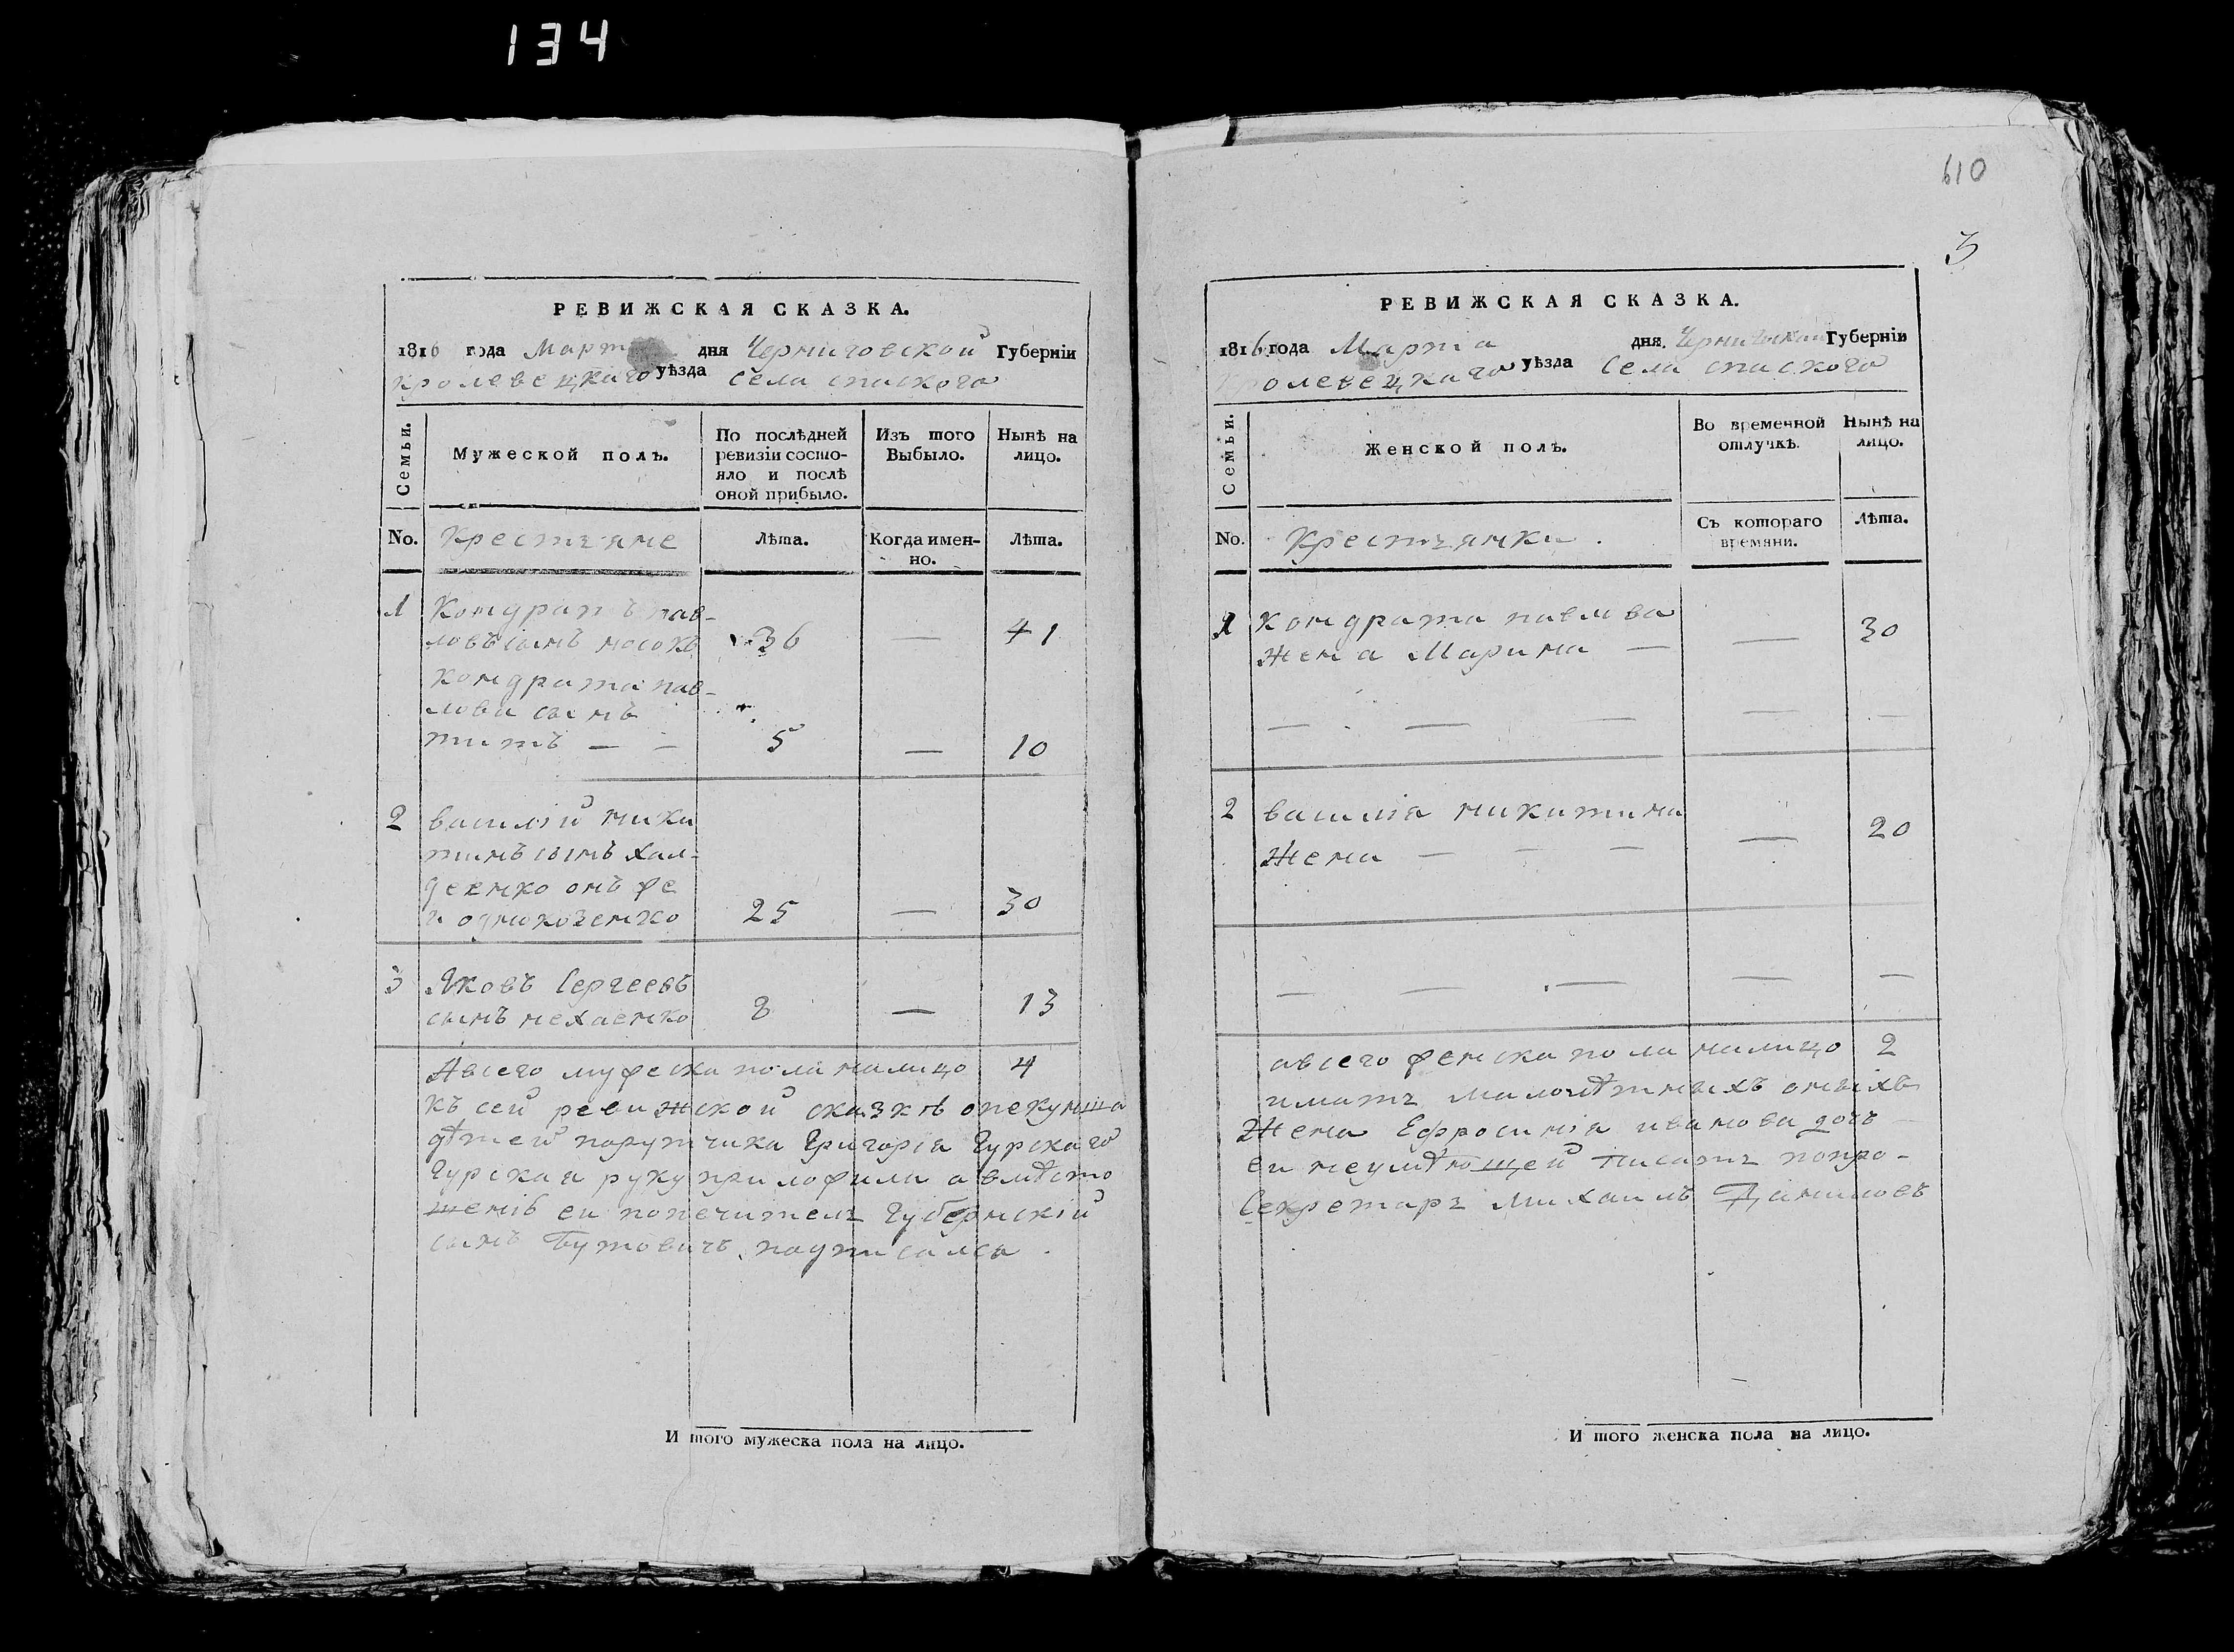 134
РЕВИЖСКАЯ СКАЗКА.
1816 года Март дня Черниговской Губерніи
кролевецкаго уѣзда села спаского
Семьи.
Мужеской полъ.
По послѣдней
ревизіи состо-
яло и послѣ
оной прибыло.
Изъ того
Выбыло.
Нынѣ на
лицо.
No. Крестьяне Лѣта. Когда имен-
но. Лѣта.
1 Кондратъ пав-
ловъ сынъ носокъ 36 — 41
Кондрата пав-
лова сынъ
титъ — — 5 — 10
2 василій ники
тинъ сынъ хал-
25 — 30
3 Яковъ Сергеевъ
сынъ нехаенко 8 — 13
Авсего мужеска пола налицо 4
къ сей ревижской сказкѣ опекунша
дѣтей порутчика Григорія Гурскаго
Гурская руку приложила авмѣсто
еи попечитель Губернскій
сынъ Бутовичъ подписался.
И того мужеска пола на лицо.
610
3
РЕВИЖСКАЯ СКАЗКА.
1816 года Марта дня. Губерніи
кролевецкаго уѣзда Села спаского
Семьи.
Женской полъ.
Во временной
отлучкѣ.
Нынѣ на
лицо.
No. Крестьянки. Съ котораго
времяни. Лѣта.
1 кондрата павлова
Жена Марина — — 30
— — — — —
2 василія никитина
Жена — — — — 20
— — — — —
авсего женска пола налицо 2
имать малолѣтныхъ оныхъ
Жена Ефросинія иванова дочь
еи неумѣющей писать попро-
Секретарь Михаилъ Даниловъ
И того женска пола на лицо.